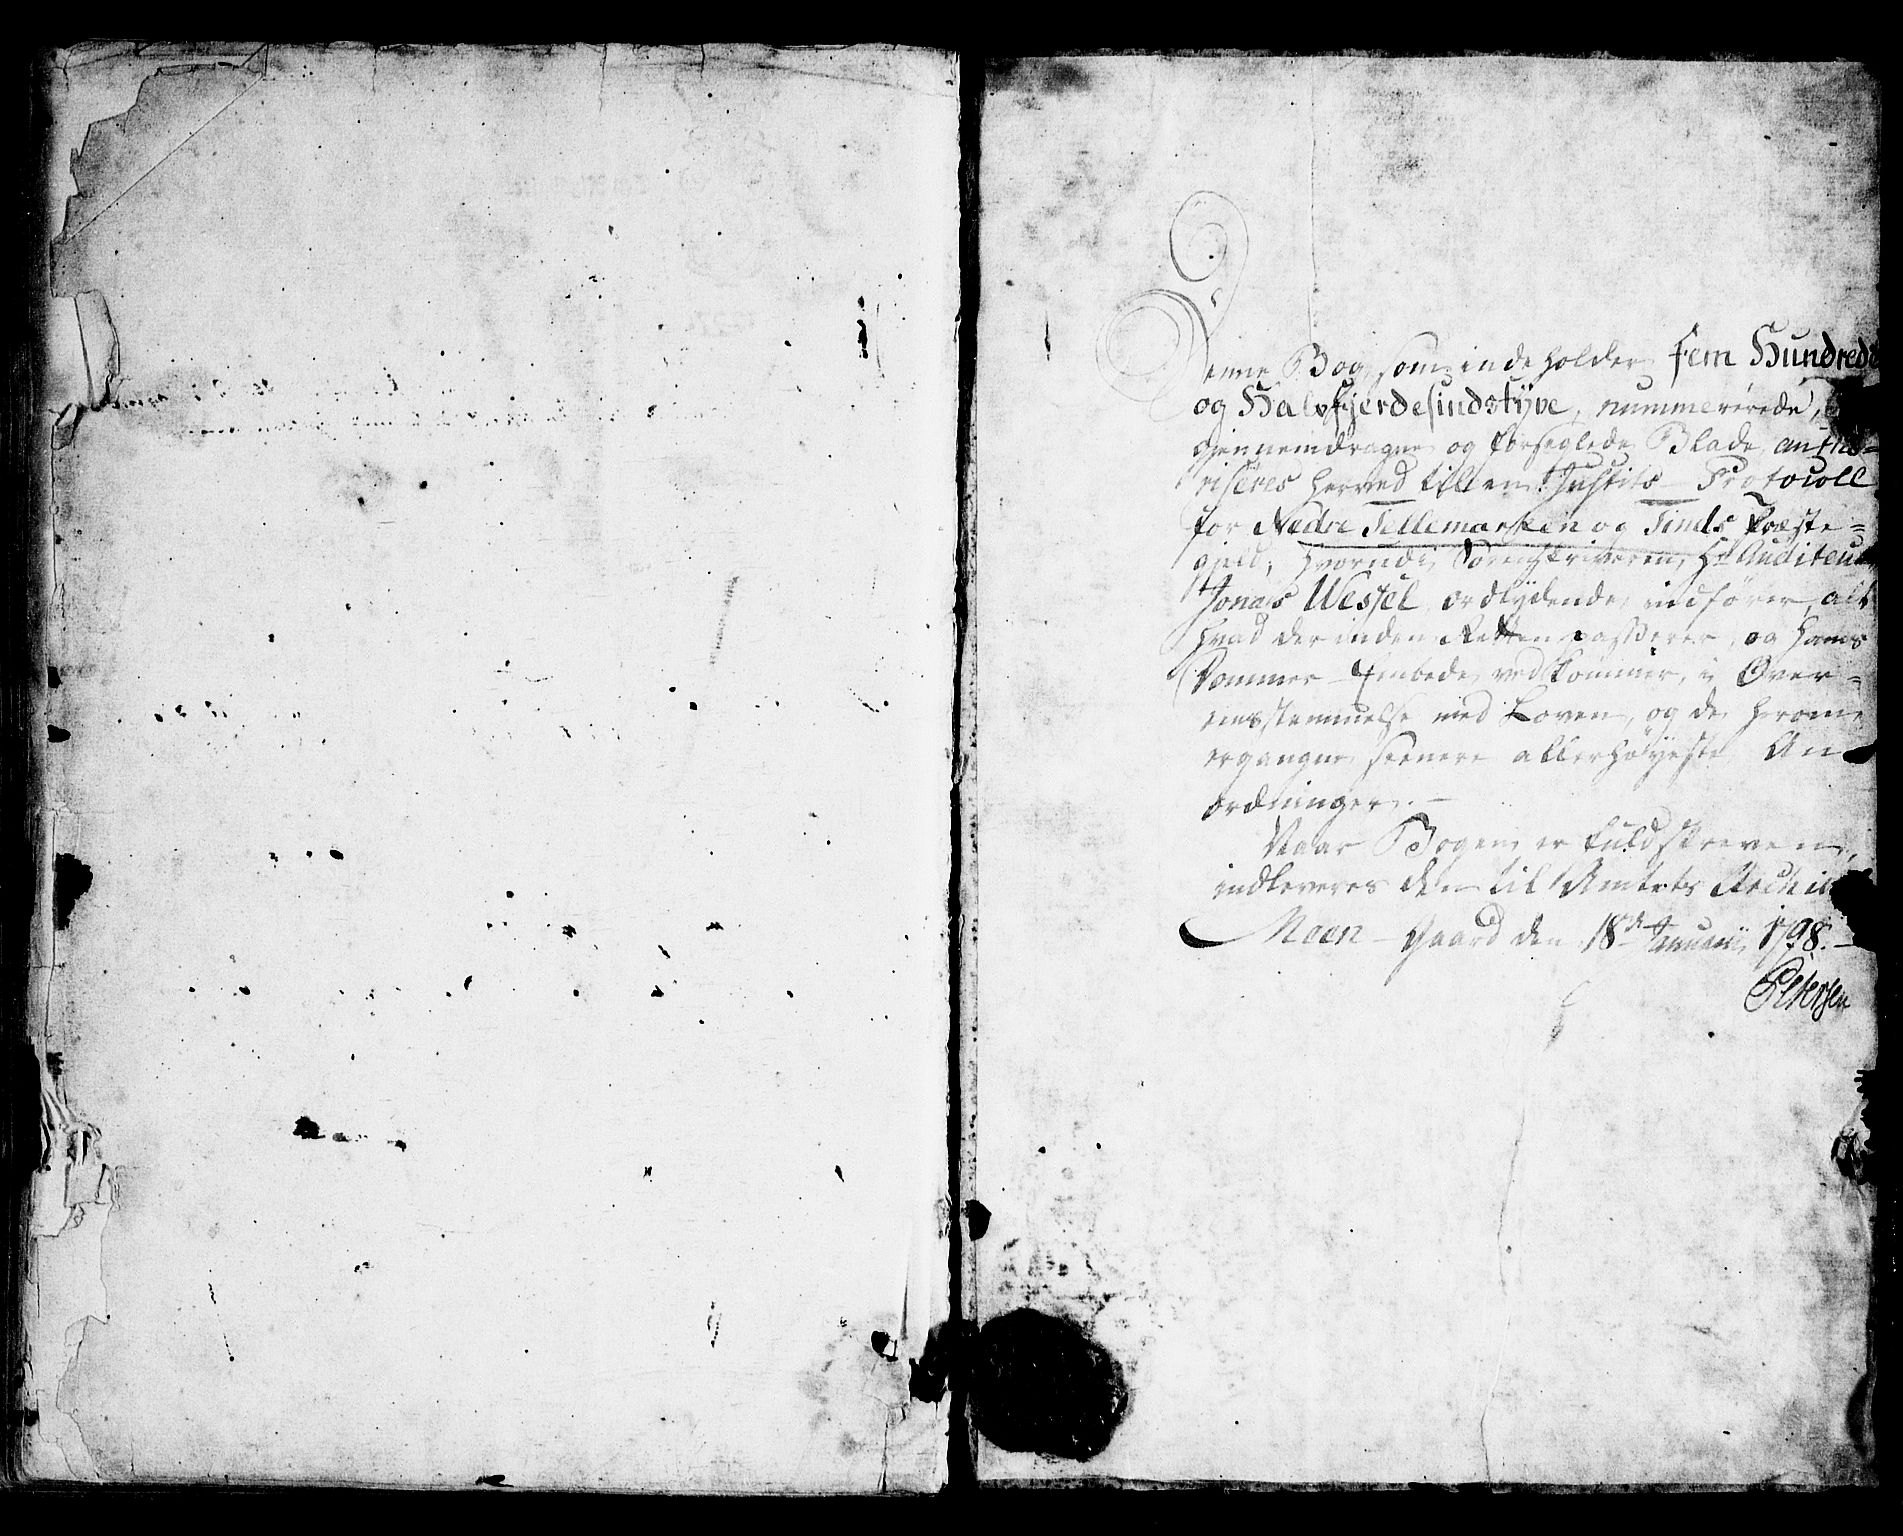 Denne Bog, som indeholder Fem Hundrede
og Halvfjerdesindstÿve, nummererede,
gjennemdragne og forseglede Blade, autho-
riseres herved til en Justits-Protocoll
for Nedre Tellemarken og Tinds Præste-
gjeld, hvorudi Sorenskriveren, Hr Auditeur
Jonas Wessel ordlydende indfører, alt
hvad der inden Retten passerer, og hans
Dommer-Embede vedkommer, i Over-
eensstemmelse med Loven, og de herom
ergangne seenere allerhøyeste An-
ordninger. -
Naar Bogen er fuldskreven,
indleveres den til Amtets Archiv
Moen-Gaard den 18de Januarii, 1798. -
Petersen